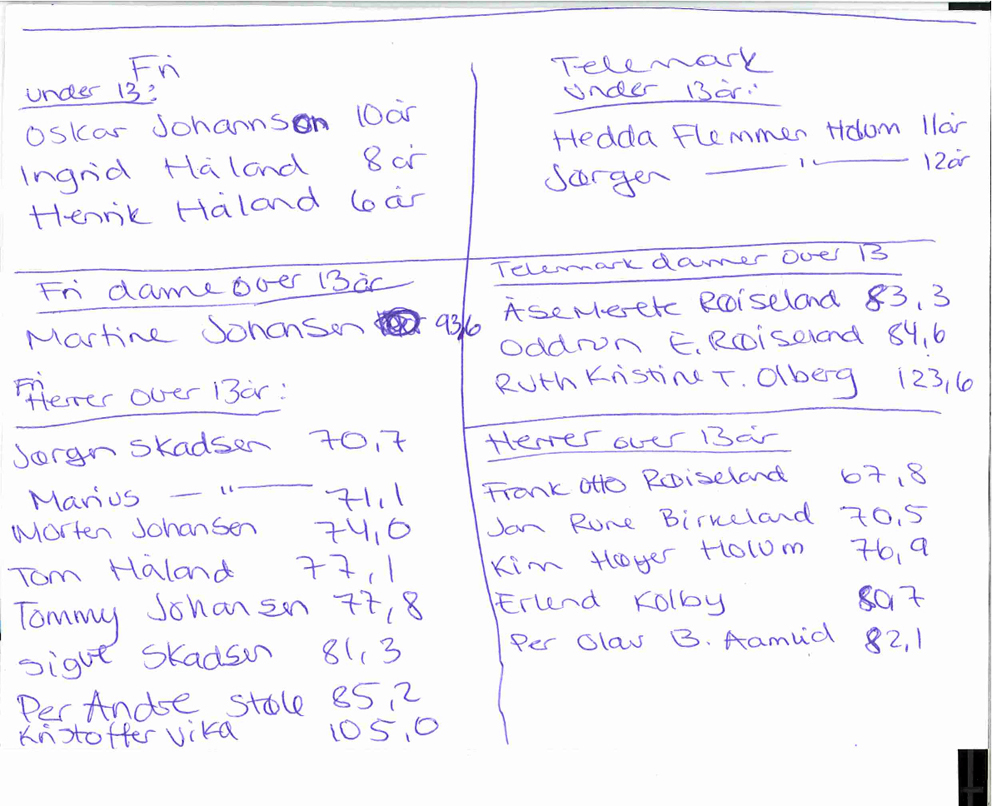 Fri
under 13:
Oskar Johannson 10 år
Ingrid Håland 8 år
Henrik Håland 6 år
Telemark
under 13 år:
Hedda Flemmen Holum 11 år
Jørgen — " — 12 år
Fri dame over 13 år
Martine Johansen 93,6
Telemark damer over 13
Åse Merete Røiseland 83,3
Oddrun E. Røiseland 84,6
Ruth Kristine T. Olberg 123,6
Fri
Herrer over 13 år:
Jørgn Skadsen 70,7
Marius — " — 71,1
Morten Johansen 74,0
Tom Håland 77,1
Tommy Johansen 77,8
Sigve Skadsen 81,3
Per Andre Støle 85,2
Kristoffer Vika 105,0
Herrer over 13 år
Frank Otto Røiseland 67,8
Jan Rune Birkeland 70,5
Kim Høyer Holum 76,9
Erlend Kolby 80,7
Per Olav B. Aamlid 82,1